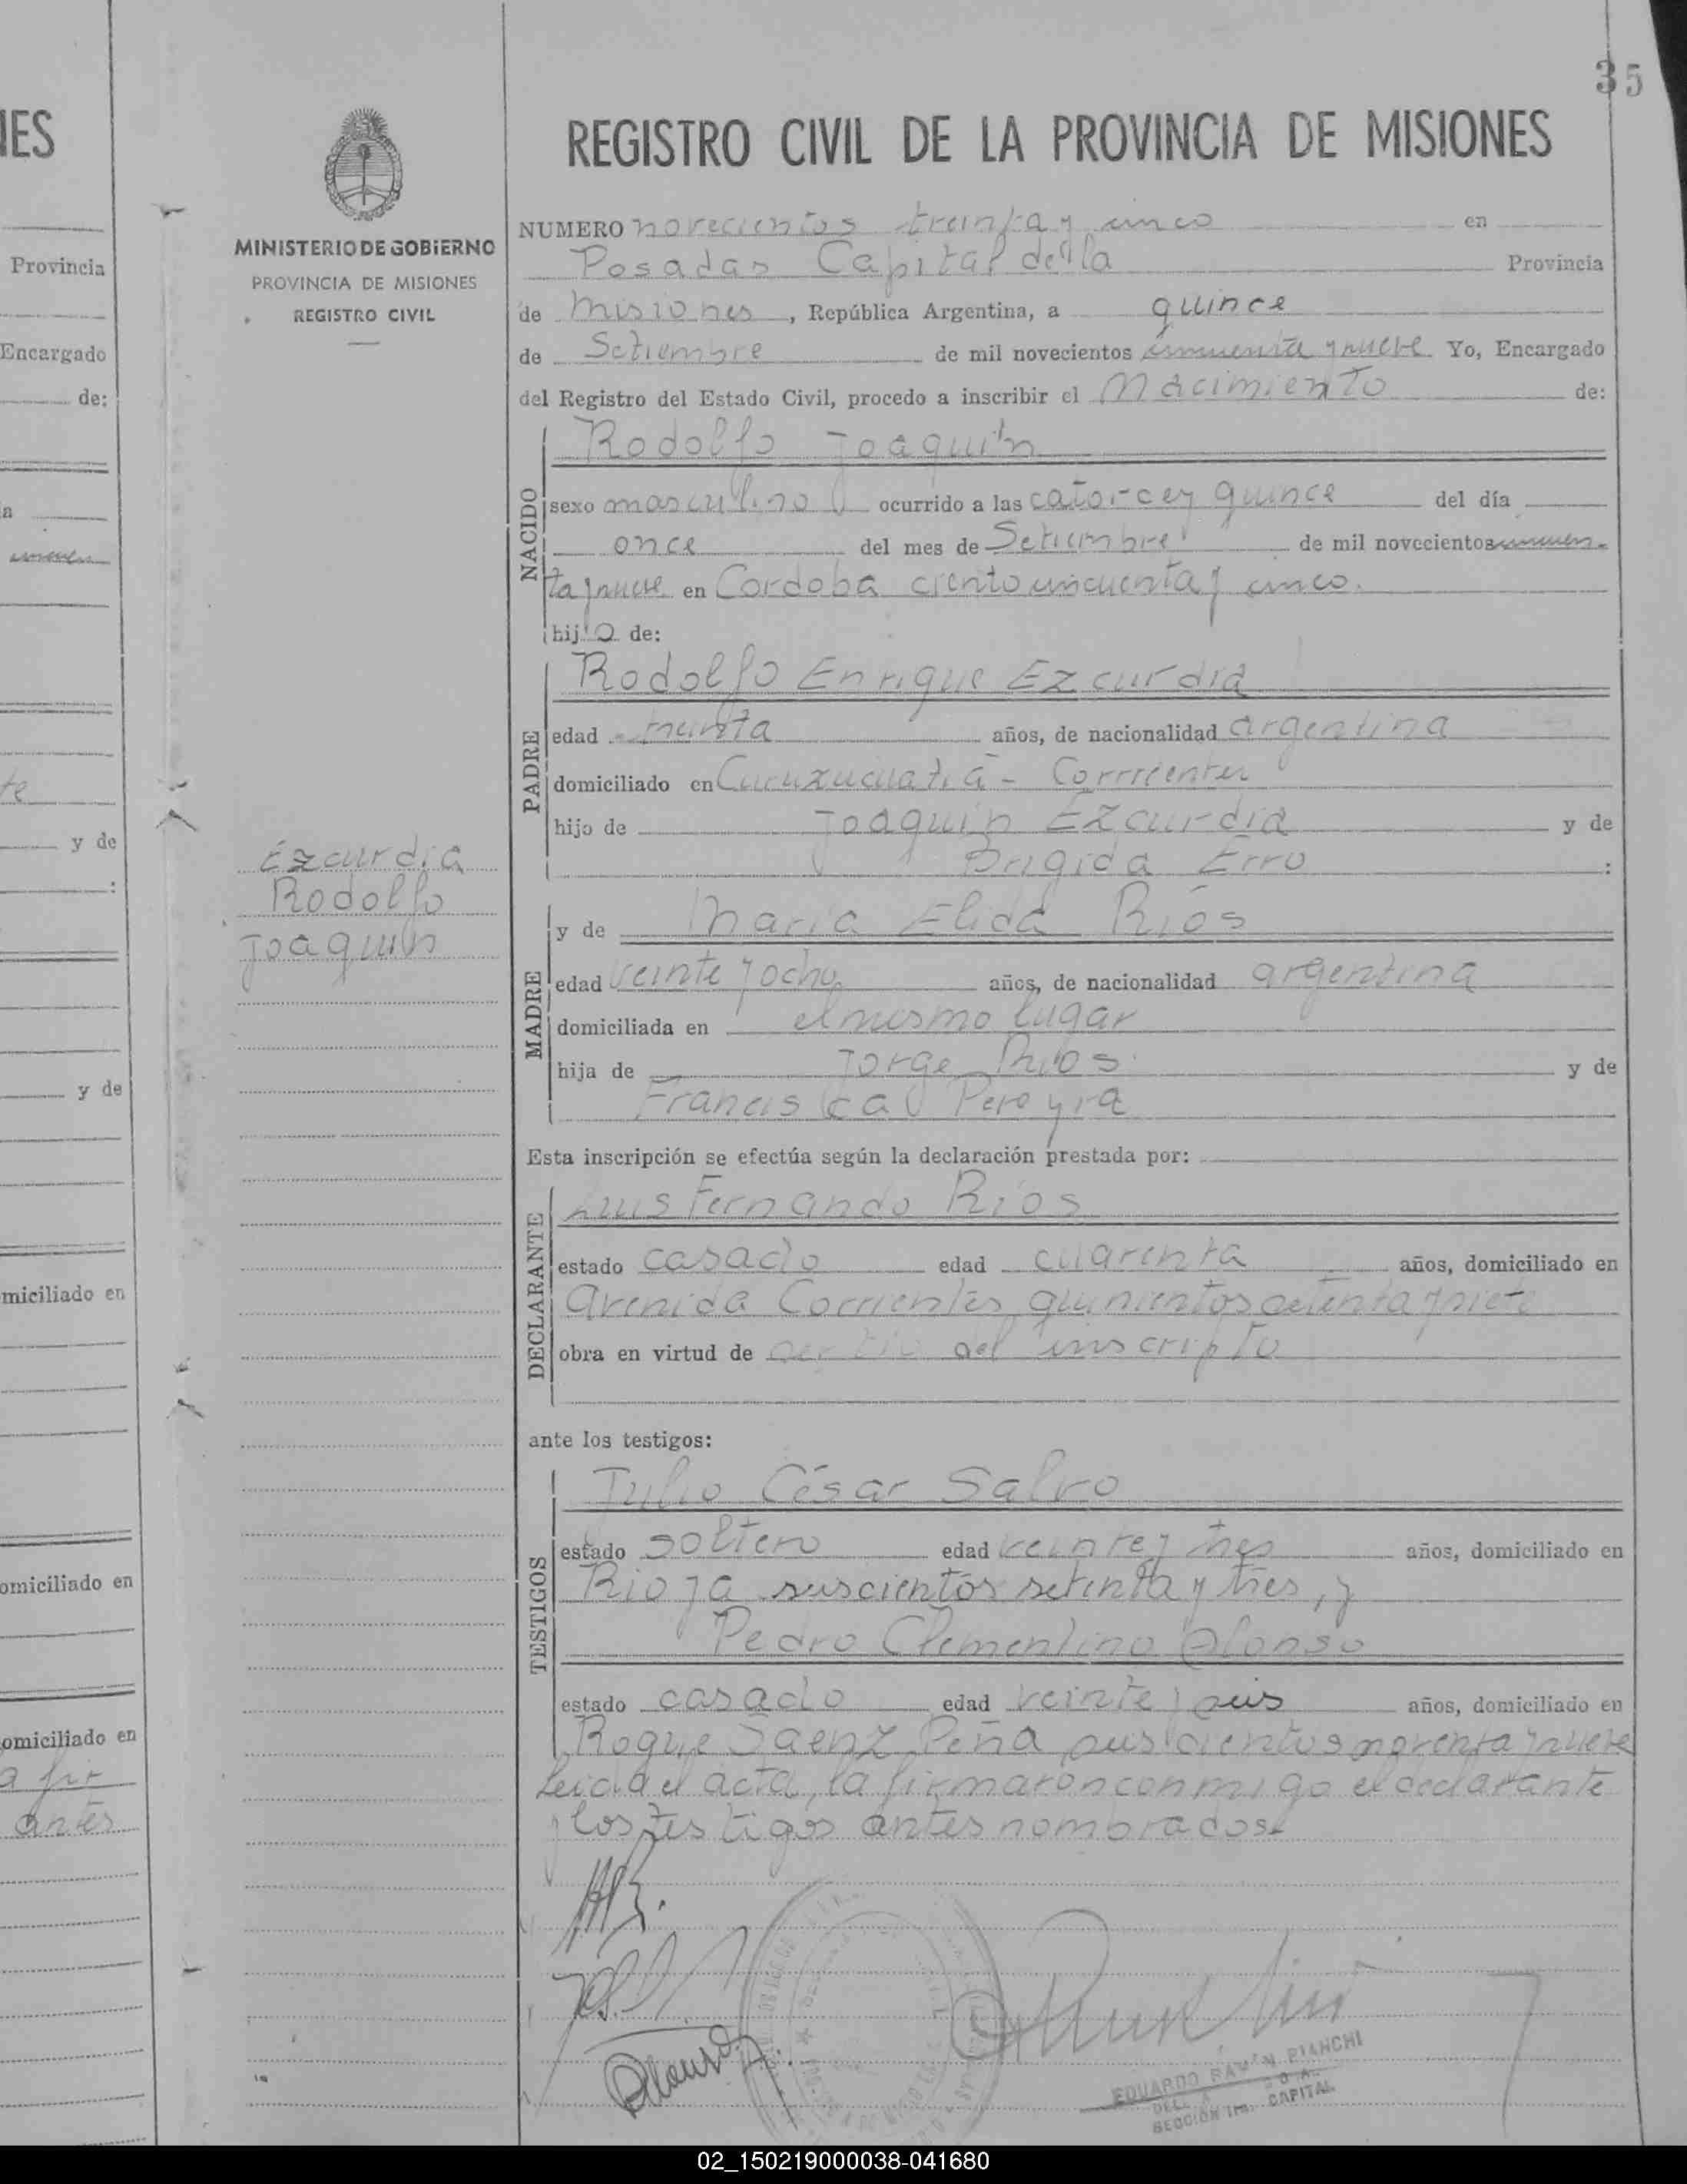 35
IES
REGISTRO CIVIL DE LA PROVINCIA DE MISIONES
MINISTERIO DE GOBIERNO
PROVINCIA DE MISIONES
REGISTRO CIVIL
Provincia
Encargado
de:
a
y de
:
y de
miciliado en
omiciliado en
omiciliado en
antes
Ezcurdia
Rodolfo
Joaquín
NUMERO novecientos treinta y cinco en
Posadas Capital de la Provincia
de Misiones, República Argentina, a quince
de Setiembre de mil novecientos cincuenta y nueve Yo, Encargado
del Registro del Estado Civil, procedo a inscribir el Nacimiento de:
NACIDO
Rodolfo Joaquín
sexo masculino ocurrido a las catorce y quince del día
once del mes de Setiembre de mil novecientos cincuen-
ta y nueve en Cordoba ciento cincuenta y cinco.
hijo de:
PADRE
Rodolfo Enrique Ezcurdia
edad treinta años, de nacionalidad argentina
domiciliado en Curuzucuatiá - Corrrientes
hijo de Joaquin Ezcurdia y de
Brigida Erro :
MADRE
y de Maria Elida Ríos
edad veinte y ocho años, de nacionalidad argentina
domiciliada en el mismo lugar
hija de Jorge Ríos y de
Francisca Pereyra
Esta inscripción se efectúa según la declaración prestada por:
DECLARANTE
Luis Fernando Ríos
estado casado edad cuarenta años, domiciliado en
Avenida Corrientes quinientos setenta y siete
obra en virtud de ser tio del inscripto
ante los testigos:
TESTIGOS
Julio César Salvo
estado soltero edad veinte y tres años, domiciliado en
Rioja seiscientos setenta y tres, y
Pedro Clementino Alonso
estado casado edad veinte y seis años, domiciliado en
Roque Saenz Peña seiscientos noventa y nueve
Leida el acta, la firmaron conmigo el declarante
y los testigos antes nombrados.
Alonso
EDUARDO RAMÓN BIANCHI
SECCIÓN 1ra. CAPITAL
02_150219000038-041680